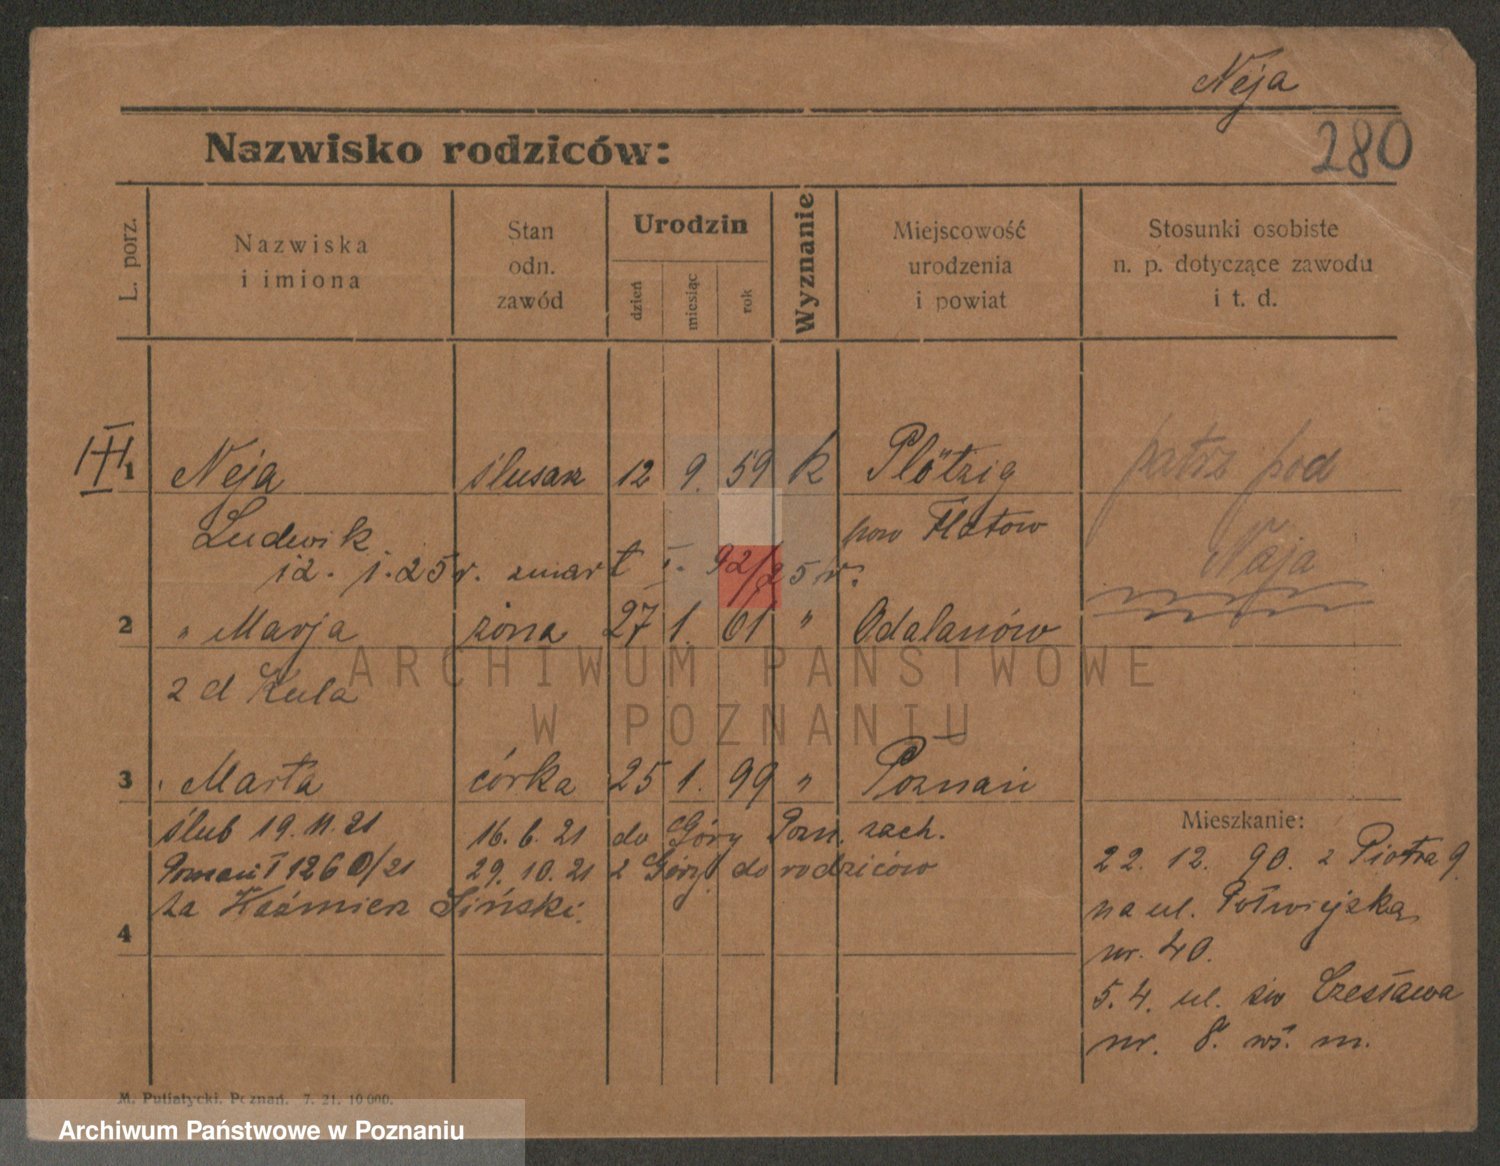 Neja
280
Nazwisko rodziców:
L. porz.
Nazwiska
i imiona
Stan
odn.
zawód
Urodzin
dzień
miesiąc
rok
Wyznanie
Miejscowość
urodzenia
i powiat
Stosunki osobiste
n. p. dotyczące zawodu
i t. d.
1 Neja ślusarz 12 9. 59 k Plötzig patrz pod
Ludwik pow Flatow Naja
12. 1. 25 r. zmarł I. 92/25 r.
2 " Marja żona 27 1. 61 " Odalanów
z d Kula
3 Marta córka 25 1. 99 " Poznań
ślub 19. 11. 21 16. 6. 21 do Góry Pozn. zach.
Poznań I 1260/21 29. 10. 21 z Góry do rodziców
za Kaźmierz Siński.
4
Mieszkanie:
22. 12. 90. z Piotra 9
na ul. Półwiejską
nr. 40.
5. 4. ul. św Czesława
nr. 8. wś. m.
M. Putiatycki, Poznań. 7. 21. 10 000.
ARCHIWUM PAŃSTWOWE
W POZNANIU
Archiwum Państwowe w Poznaniu